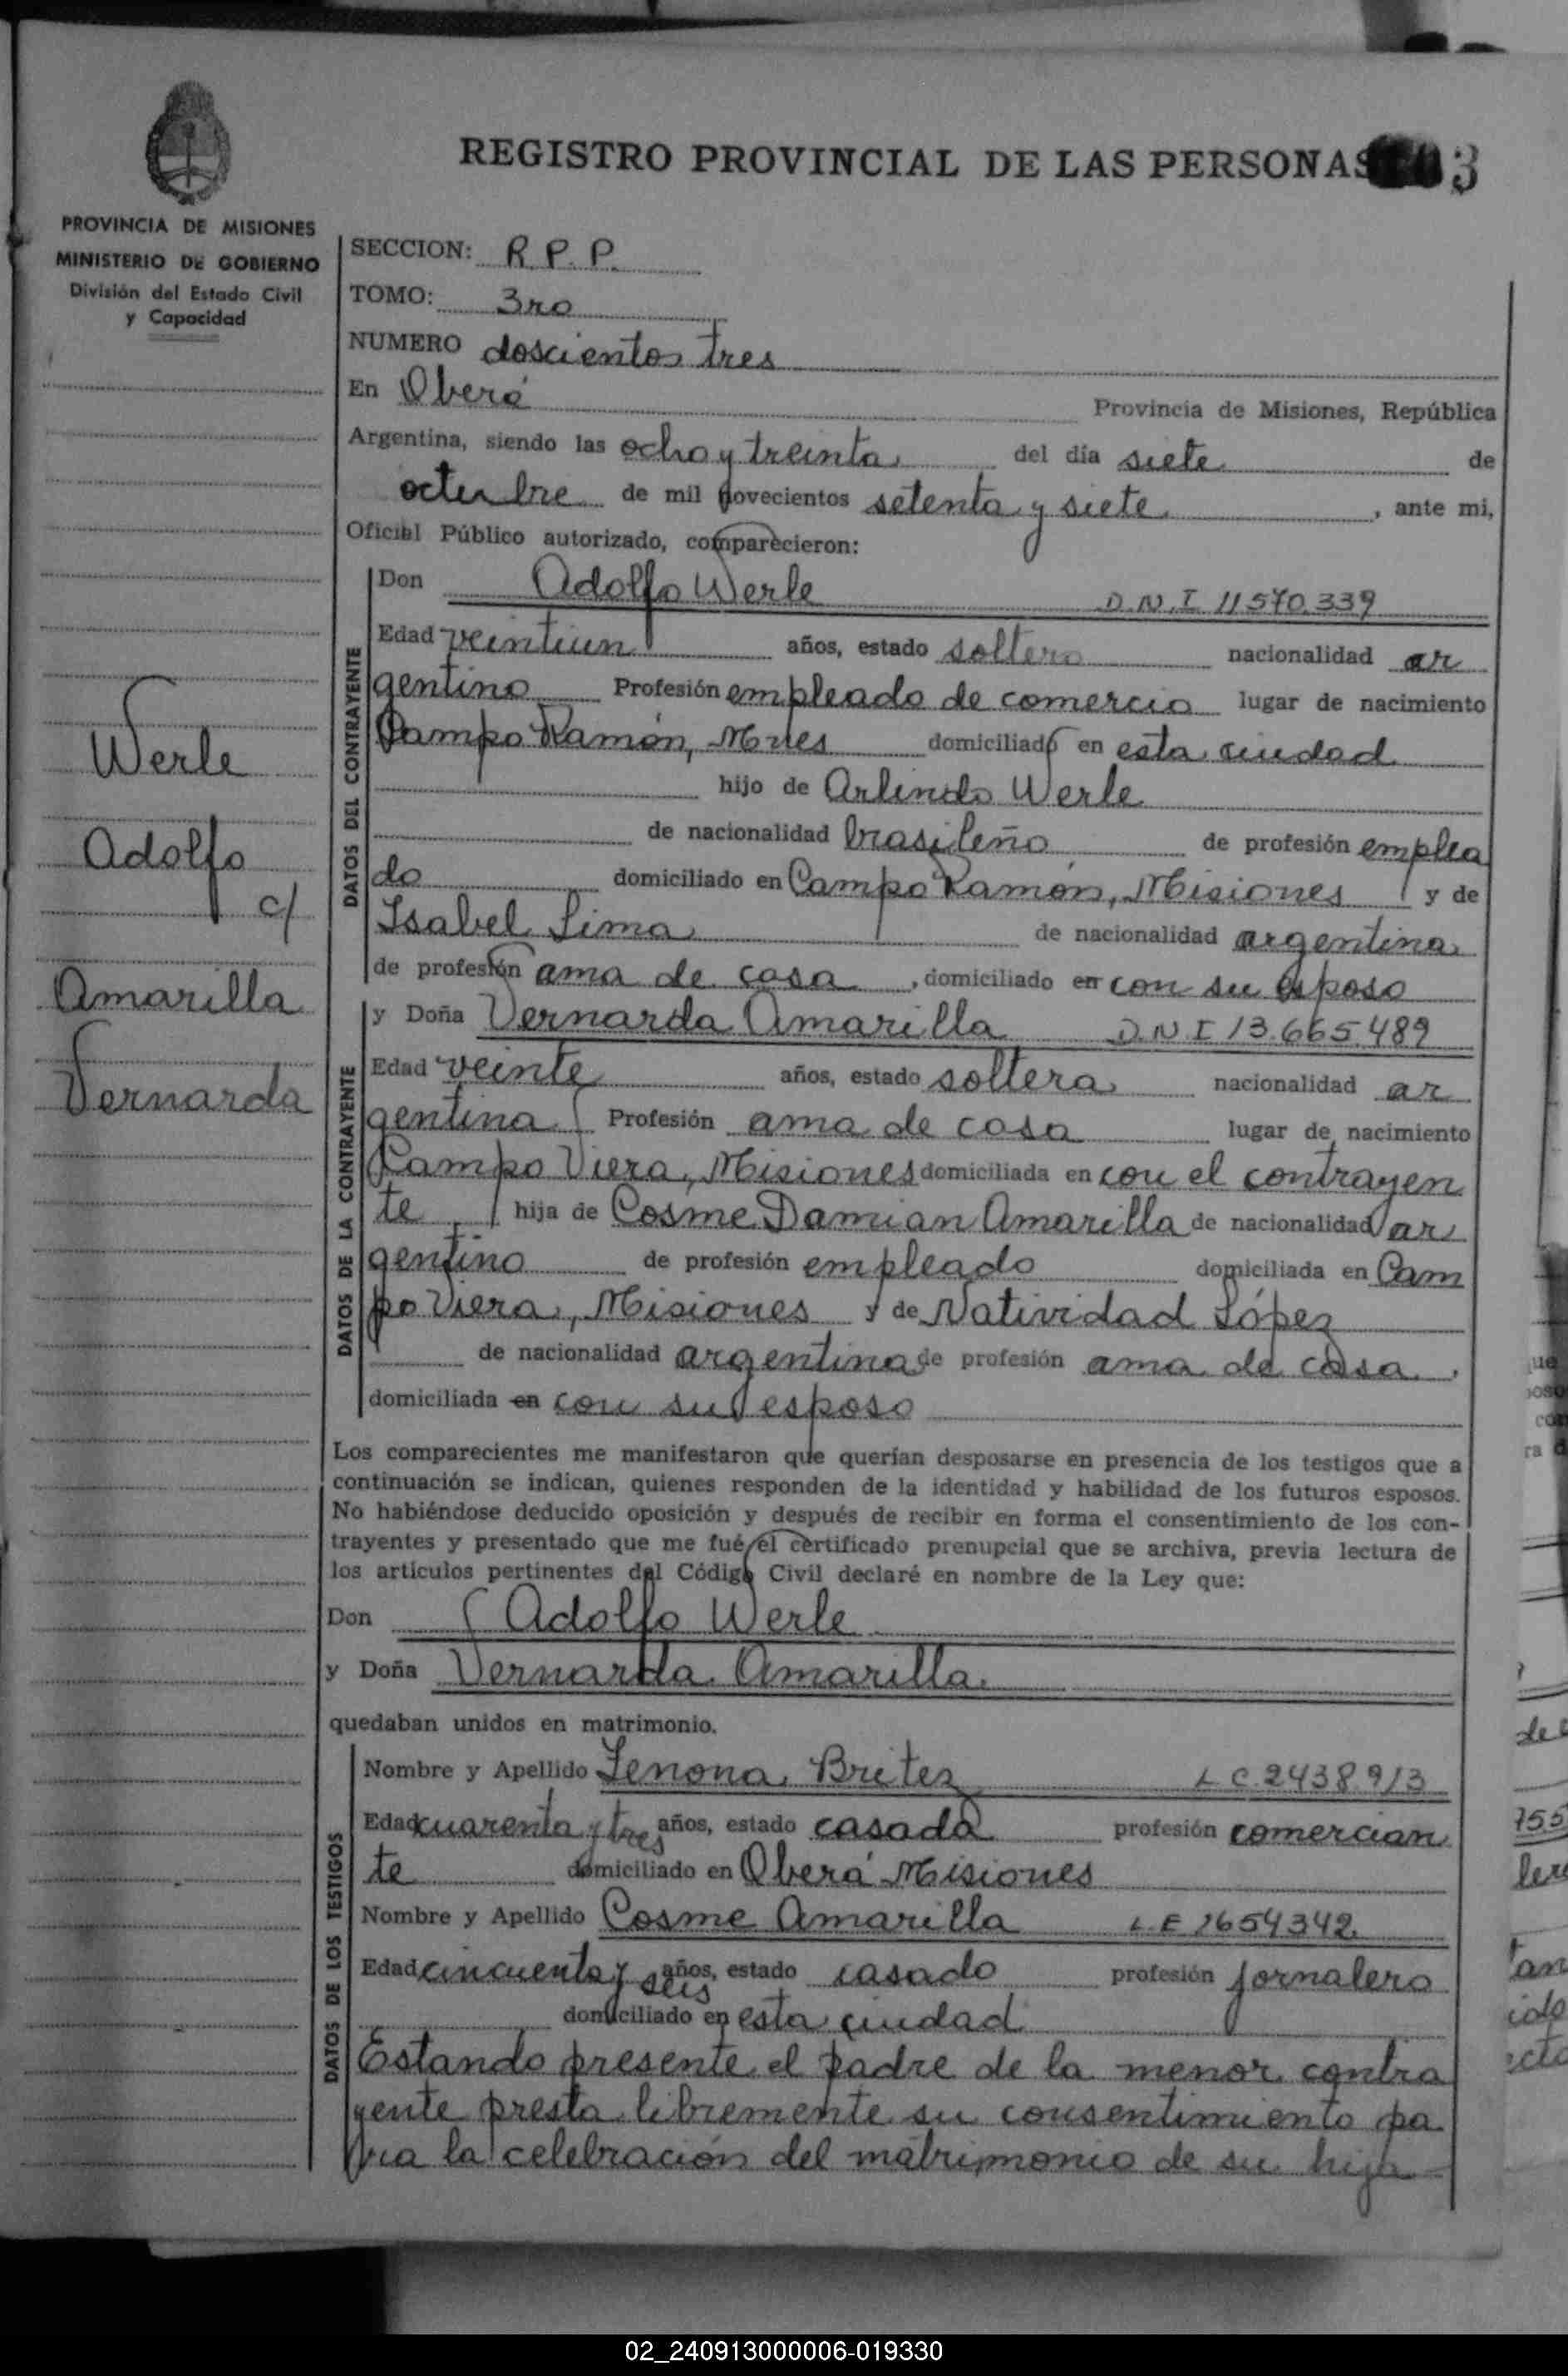 REGISTRO PROVINCIAL DE LAS PERSONAS 3
PROVINCIA DE MISIONES
MINISTERIO DE GOBIERNO
División del Estado Civil
y Capacidad
Werle
Adolfo
c/
Amarilla
Vernarda
SECCION: R.P.P.
TOMO: 3ro
NUMERO doscientos tres
En Oberá Provincia de Misiones, República
Argentina, siendo las ocho y treinta del día siete de
octubre de mil novecientos setenta y siete, ante mi,
Oficial Público autorizado, comparecieron:
DATOS DEL CONTRAYENTE
Don Adolfo Werle D.N.I 11570.339
Edad veintiun años, estado soltero nacionalidad ar
gentino Profesión empleado de comercio lugar de nacimiento
Campo Ramón, Mnes domiciliado en esta ciudad
hijo de Arlindo Werle
de nacionalidad brasileño de profesión emplea
do domiciliado en Campo Ramón, Misiones y de
Isabel Lima de nacionalidad argentina
de profesión ama de casa, domiciliado en con su esposo
DATOS DE LA CONTRAYENTE
y Doña Vernarda Amarilla D.N.I 13.665.489
Edad veinte años, estado soltera nacionalidad ar
gentina Profesión ama de casa lugar de nacimiento
Campo Viera, Misiones domiciliada en con el contrayen
te hija de Cosme Damian Amarilla de nacionalidad ar
gentino de profesión empleado domiciliada en Cam
po Viera, Misiones y de Natividad López
de nacionalidad argentina de profesión ama de casa,
domiciliada en con su esposo
Los comparecientes me manifestaron que querían desposarse en presencia de los testigos que a
continuación se indican, quienes responden de la identidad y habilidad de los futuros esposos.
No habiéndose deducido oposición y después de recibir en forma el consentimiento de los con-
trayentes y presentado que me fué el certificado prenupcial que se archiva, previa lectura de
los artículos pertinentes del Código Civil declaré en nombre de la Ley que:
Don Adolfo Werle
y Doña Vernarda Amarilla
quedaban unidos en matrimonio.
DATOS DE LOS TESTIGOS
Nombre y Apellido Zenona Britez L C 2438913
Edad cuarenta y tres años, estado casada profesión comercian
te domiciliado en Oberá Misiones
Nombre y Apellido Cosme Amarilla L E 1654342
Edad cincuenta y seis años, estado casado profesión jornalero
domiciliado en esta ciudad
Estando presente el padre de la menor contra
yente presta libremente su consentimiento pa
ra la celebración del matrimonio de su hija
02_240913000006-019330